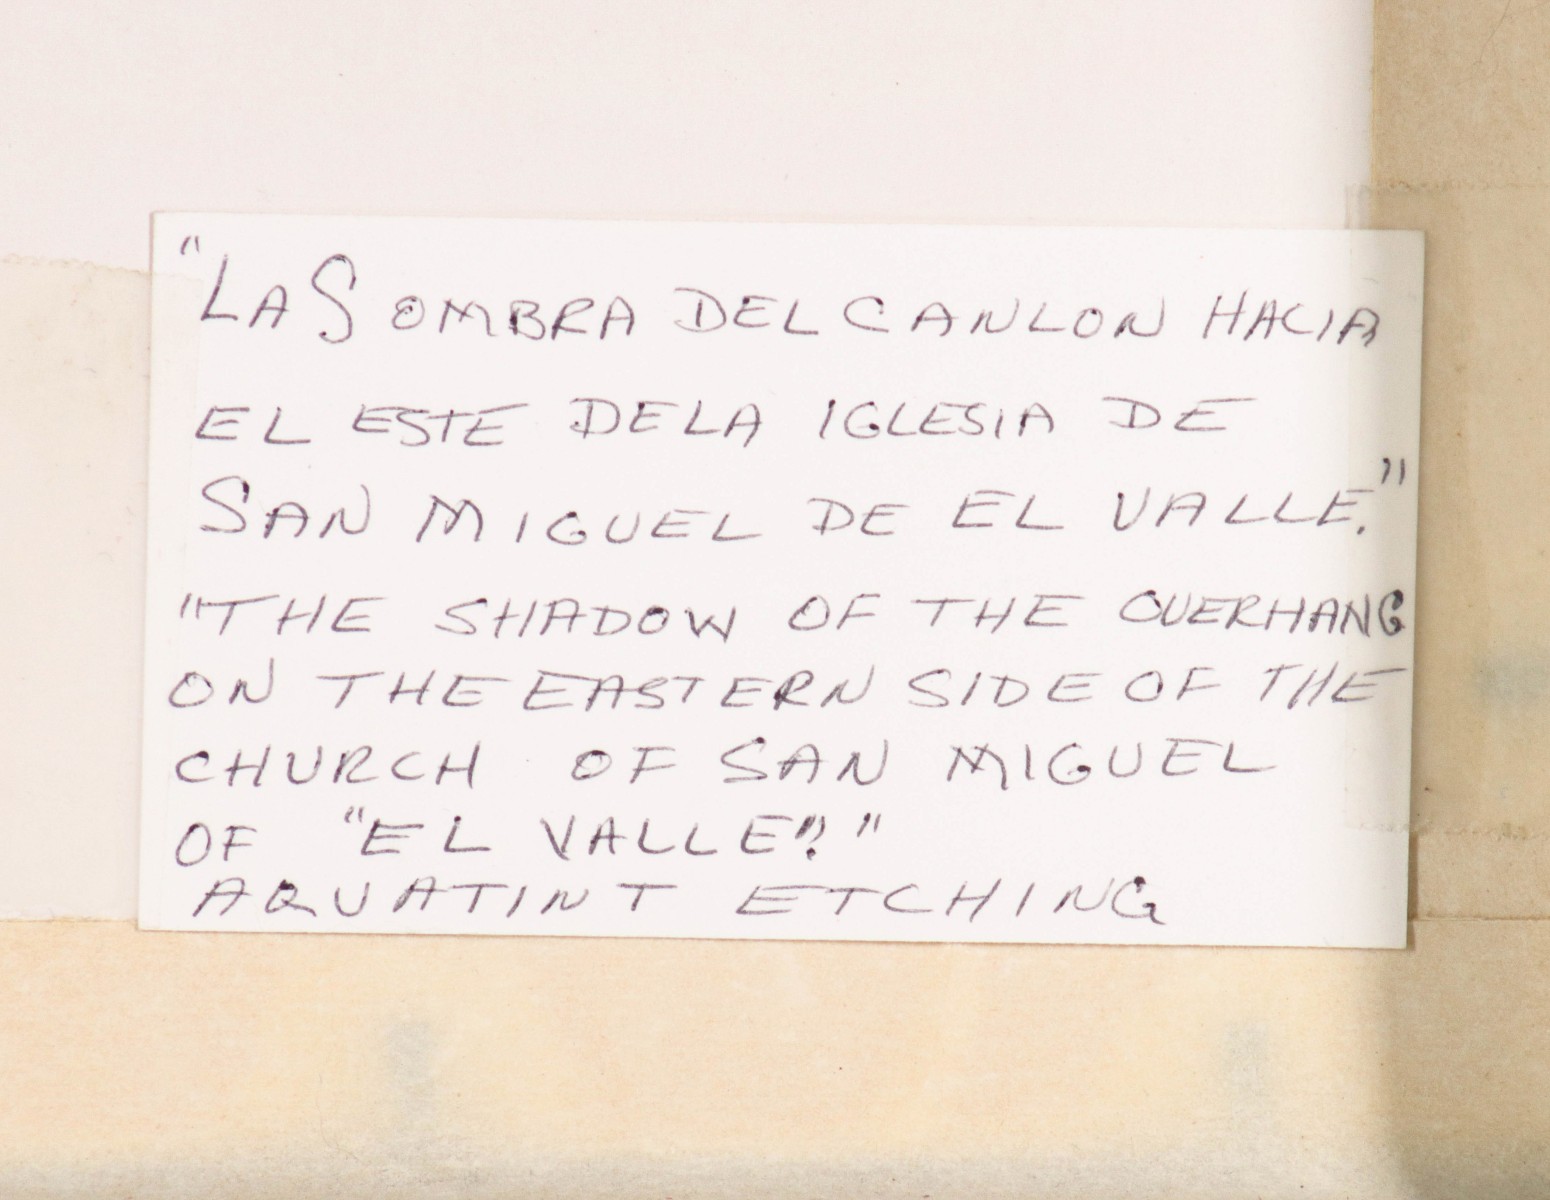 "LA SOMBRA DEL CANLON HACIA
EL ESTE DE LA IGLESIA DE
SAN MIGUEL DE EL VALLE."
"THE SHADOW OF THE OVERHANG
ON THE EASTERN SIDE OF THE
CHURCH OF SAN MIGUEL
OF "EL VALLE"."
AQUATINT ETCHING